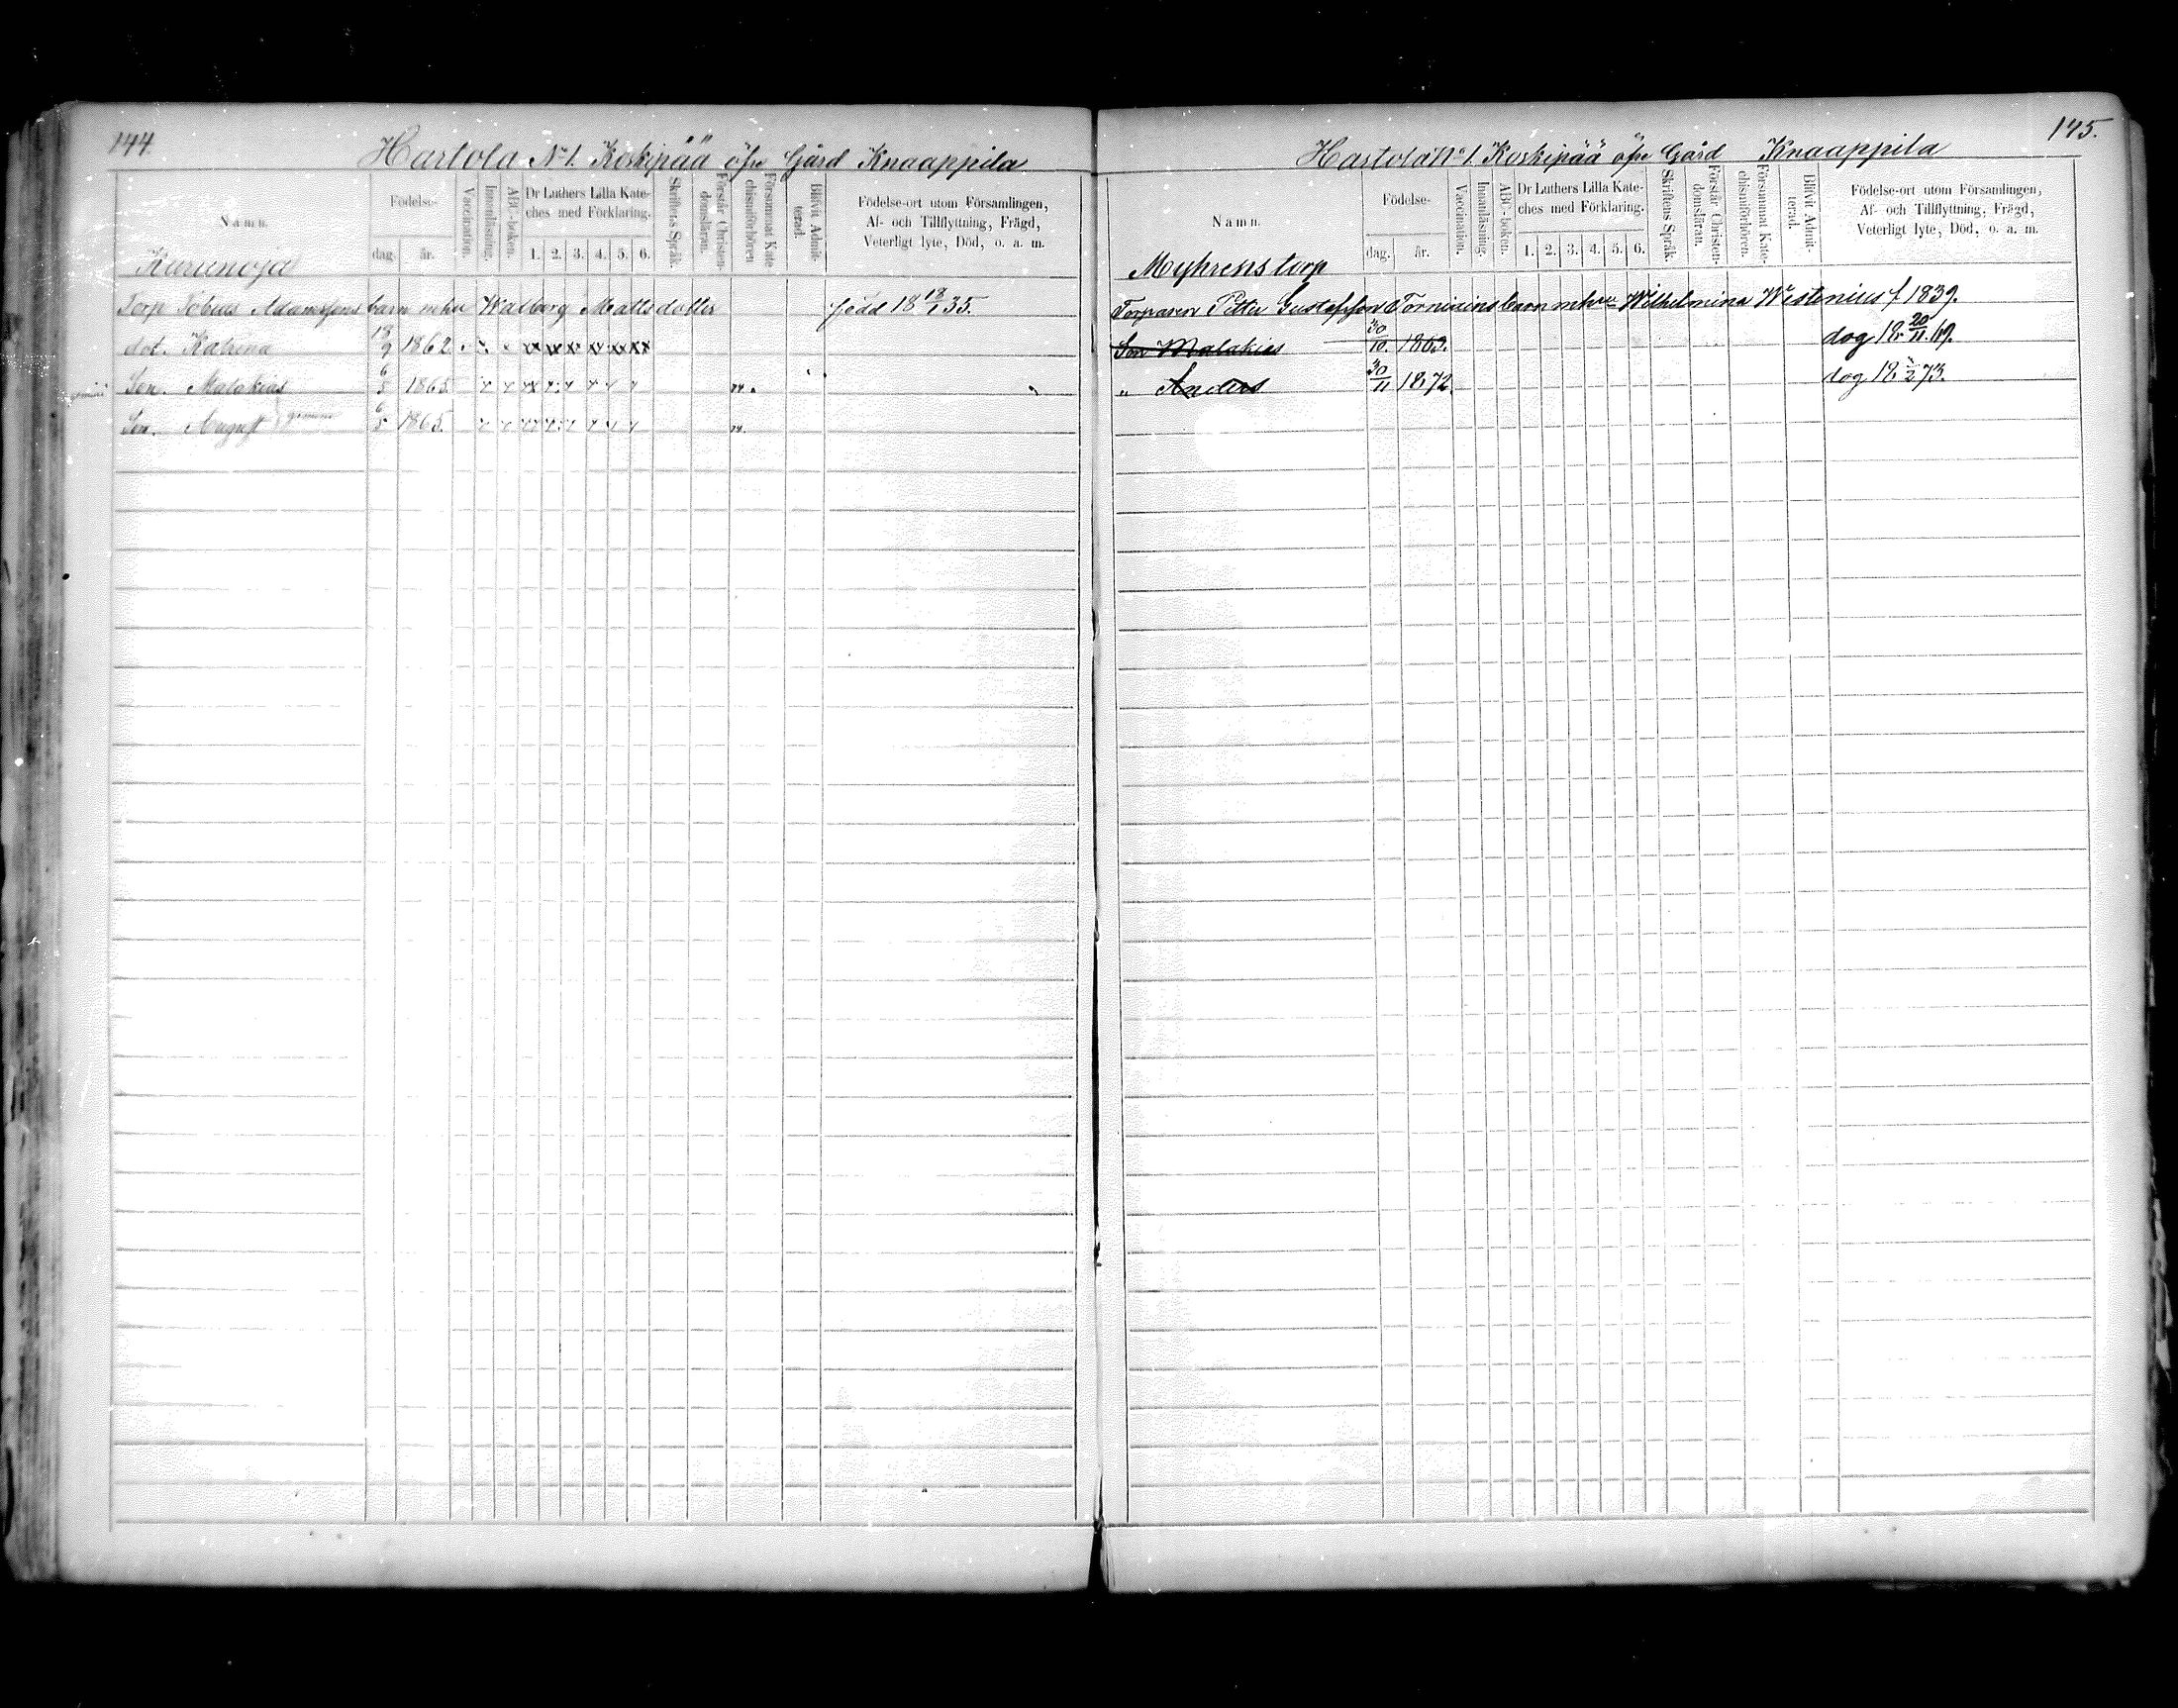 144.
Hartola No 1. Koskipää öfre Gård Knaappila
Namn.
Födelse-
dag. år.
Vaccination.
Innanläsning.
ABC-boken.
Dr Luthers Lilla Kate-
ches med Förklaring.
1. 2. 3. 4. 5. 6.
Skriftens Språk.
Förstår Christen-
domsläran.
Försummat Kate
chismiförhören
Blifvit Admit-
terad.
Födelse-ort utom Församlingen,
Af- och Tillflyttning, Frägd,
Veterligt lyte, Död, o. a. m.
Kurunoja
Torp Tobias Adamssons barn m hu Walborg Mattsdotter född 18 18/1 35.
dot. Katrina 18/9 1862.
Son. Malakias 6/5 1865. 74.
Son. August gemini 6/5 1865. 74.
145.
Hartola No 1. Koskipää öfre Gård Knaappila
Namn.
Födelse-
dag. år.
Vaccination.
Innanläsning.
ABC-boken.
Dr Luthers Lilla Kate-
ches med Förklaring.
1. 2. 3. 4. 5. 6.
Skriftens Språk.
Förstår Christen-
domsläran.
Försummat Kate-
chismiförhören.
Blifvit Admit-
terad.
Födelse-ort utom Församlingen,
Af- och Tillflyttning, Frägd,
Veterligt lyte, Död, o. a. m.
Myhrens torp
Torparen Petter Gustafsson Torniains barn m hu Wilhelmina Westenius f. 1839.
Son Malakias 30/10. 1863. dog 18 20/11. 69.
" Anders 30/11 1872. dog 18 /2 73.